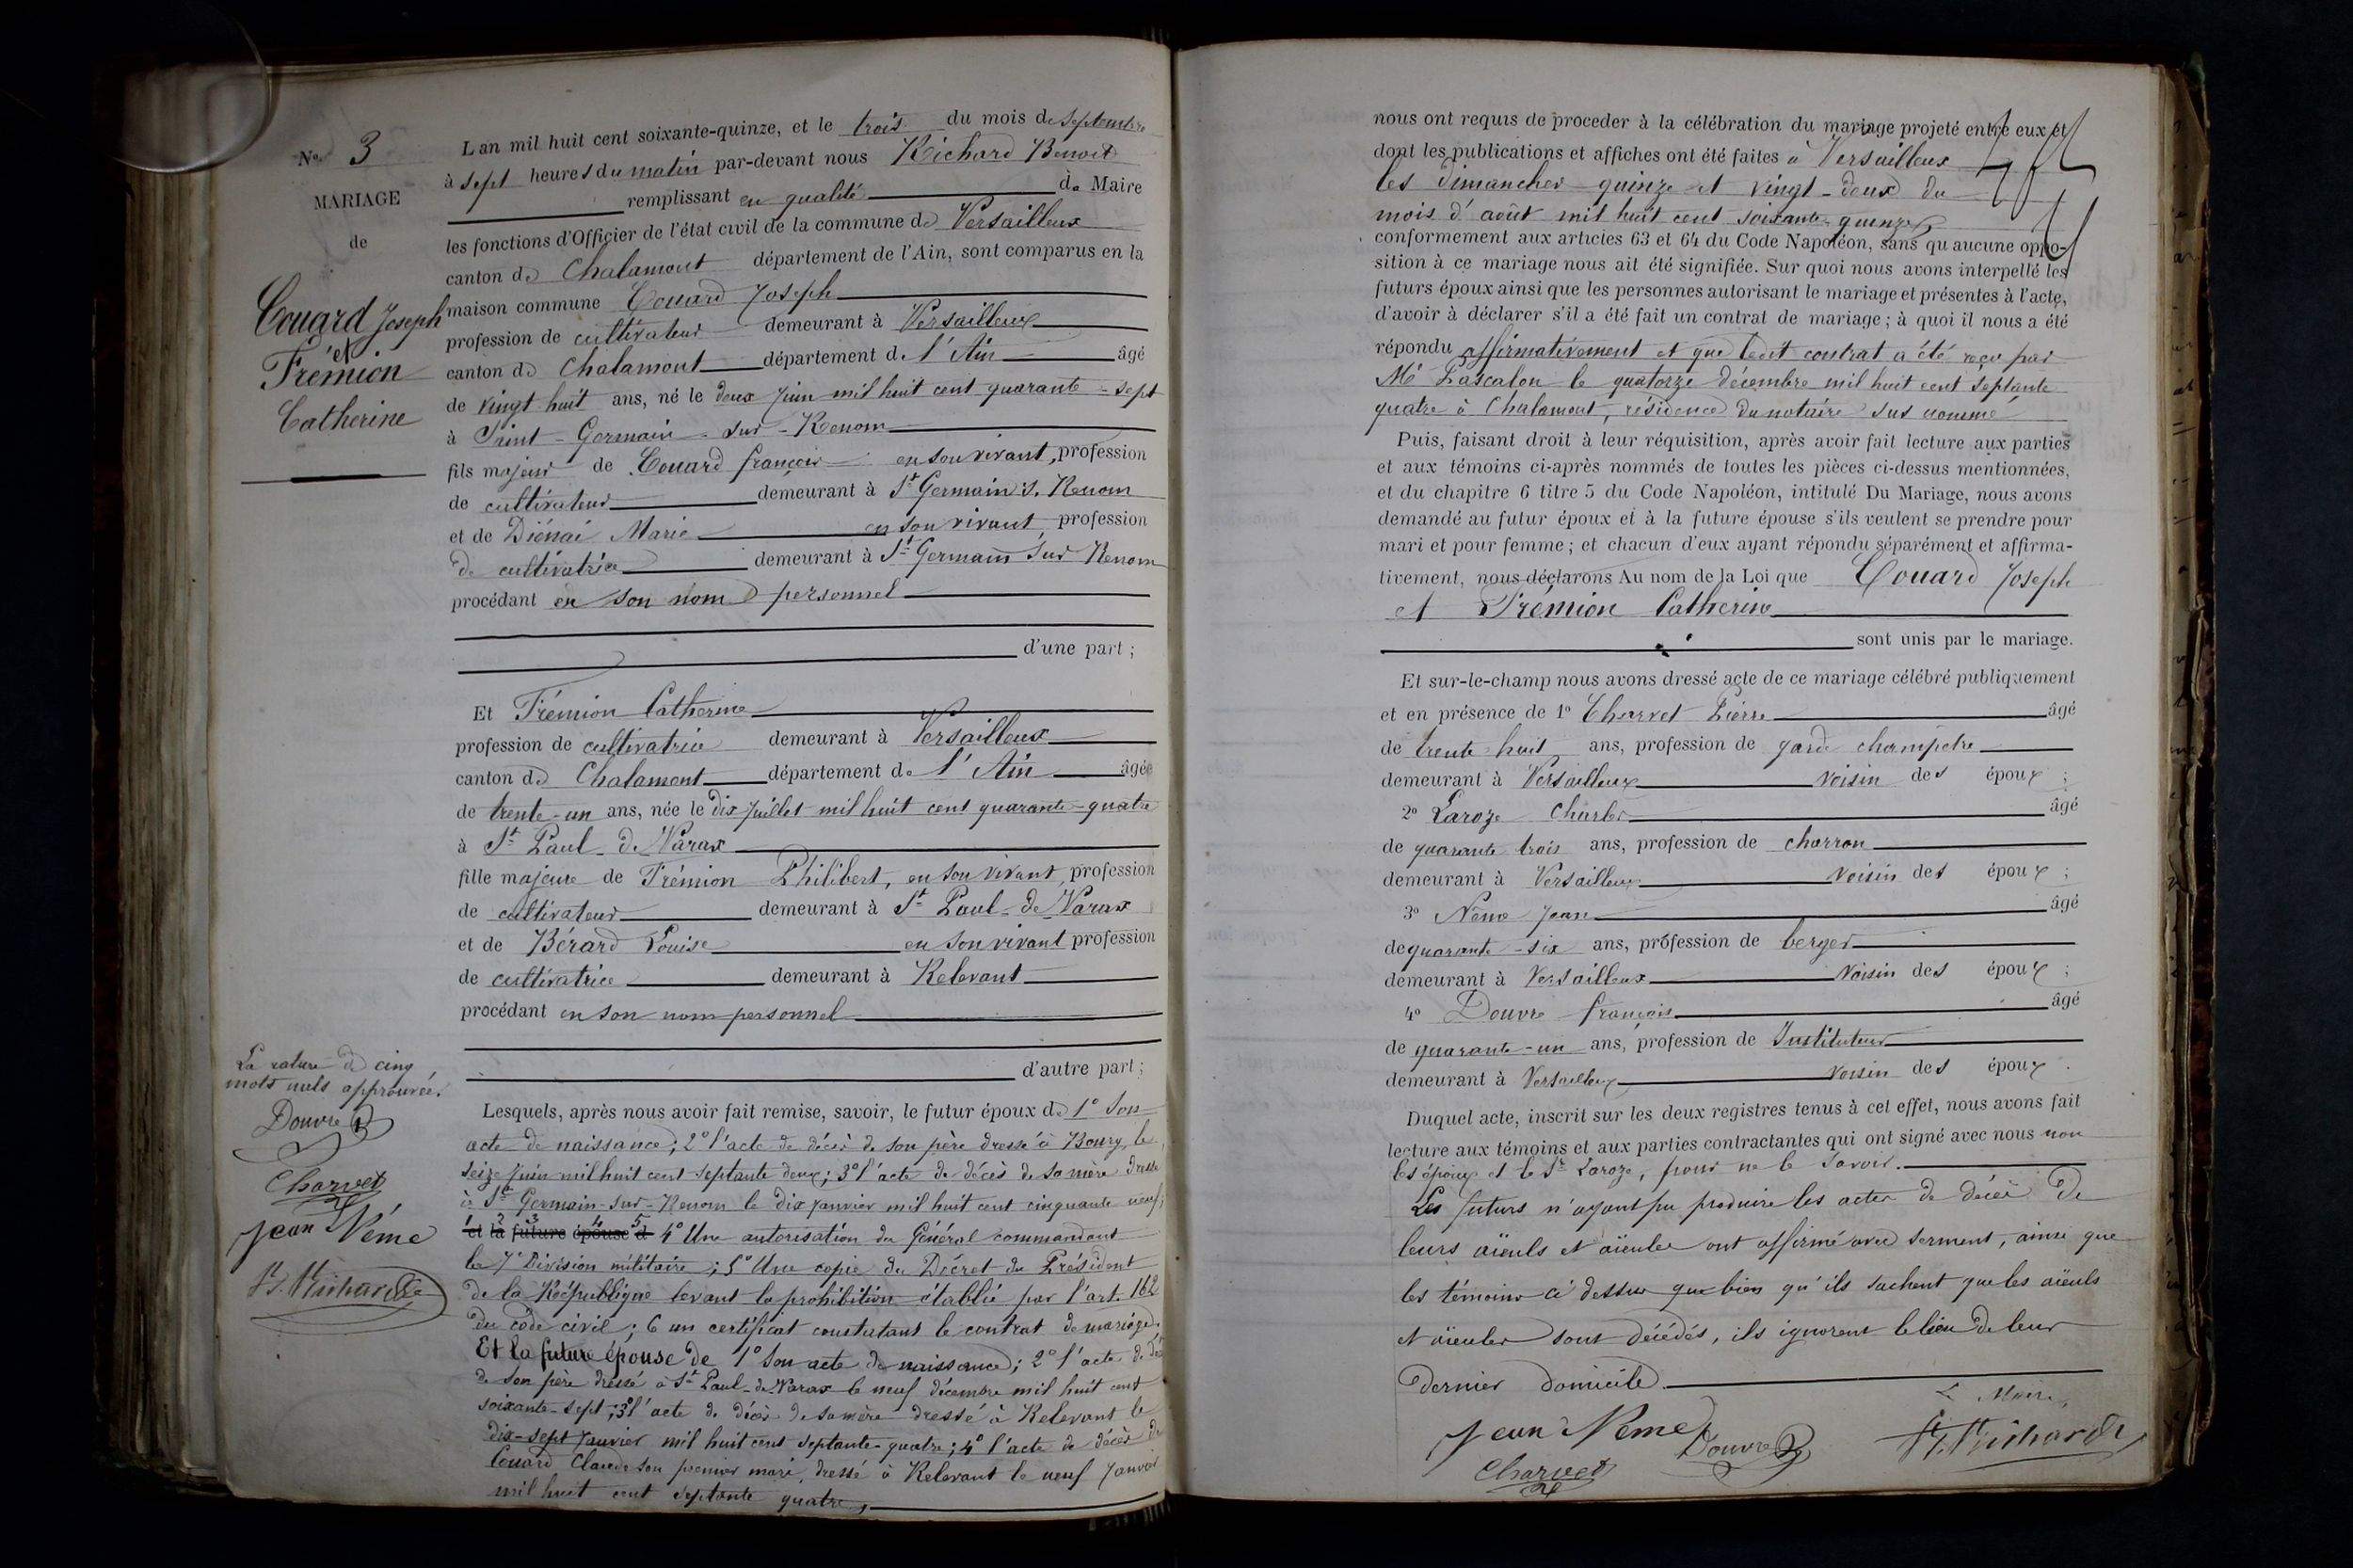 No 3
MARIAGE
de
Couard Joseph
et
Trémion
Catherine
L an mil huit cent soixante-quinze, et le trois du mois de Septembre
à sept heures du matin par-devant nous Richard Benoit
remplissant en qualité de Maire
les fonctions d'Officier de l'état civil de la commune de Versailleux
canton de Chalamont département de l'Ain, sont comparus en la
maison commune Couard Joseph
profession de cultivateur demeurant à Versailleux
canton de Chalamont département de l'Ain âgé
de vingt huit ans, né le deux juin mil huit cent quarante-sept
à Saint-Germain-sur-Renom
fils majeur de Couard françois en son vivant, profession
de cultivateur demeurant à St Germain s. Renom
et de Marie en son vivant profession
de cultivatrice demeurant à St Germain sur Renom
procédant en son nom personnel
d'une part ;
Et Trémion Catherine
profession de cultivatrice demeurant à Versailleux
canton de Chalamont département de l'Ain âgée
de trente-un ans, née le dix juillet mil huit cent quarante-quatre
à St Paul-de-Varax
fille majeure de Trémion Philibert, en son vivant, profession
de cultivateur demeurant à St Paul-de-Varax
et de Bérard Louise en son vivant profession
de cultivatrice demeurant à Relevant
procédant en son nom personnel
d'autre part ;
Lesquels, après nous avoir fait remise, savoir, le futur époux de 1° Son
acte de naissance ; 2° l'acte de décès de son père dressé à Bourg, le
seize juin mil huit cent septante deux ; 3° l'acte de décès de sa mère dressé
à St Germain-sur-Renom le dix janvier mil huit cent cinquante neuf ;
et la future épouse d 4° Une autorisation du Général commandant
la 7e Division militaire ; 5° Une copie du Décret du Président
de la République levant la prohibition établie par l'art. 162
du code civil ; 6 un certificat constatant le contrat de mariage.
Et la future épouse de 1° Son acte de naissance ; 2° l'acte de
de son père dressé à St Paul-de-Varax le neuf décembre mil huit cent
soixante-sept ; 3° l'acte de décès de sa mère dressé à Relevant le
dix-sept janvier mil huit cent septante-quatre ; 4° l'acte de décès de
Couard Claude son premier mari, dressé à Relevant le neuf Janvier
mil huit cent septante quatre,
La rature de cinq
mots nuls approuvée.
Douvre
Charvet
Jean Néme
B. Richard
nous ont requis de proceder à la célébration du mariage projeté entre eux et
dont les publications et affiches ont été faites à Versailleux
les dimanches quinze et vingt-deux du
mois d'août mil huit cent soixante-quinze
conformement aux articles 63 et 64 du Code Napoléon, sans qu aucune oppo-
sition à ce mariage nous ait été signifiée. Sur quoi nous avons interpellé les
futurs époux ainsi que les personnes autorisant le mariage et présentes à l'acte,
d'avoir à déclarer s'il a été fait un contrat de mariage ; à quoi il nous a été
répondu affirmativement et que ledit contrat a été reçu par
Me Pascalon le quatorze décembre mil huit cent septante
quatre à Chalamont, résidence du notaire sus nommé
Puis, faisant droit à leur réquisition, après avoir fait lecture aux parties
et aux témoins ci-après nommés de toutes les pièces ci-dessus mentionnées,
et du chapitre 6 titre 5 du Code Napoléon, intitulé Du Mariage, nous avons
demandé au futur époux et à la future épouse s'ils veulent se prendre pour
mari et pour femme ; et chacun d'eux ayant répondu séparément et affirma-
tivement, nous déclarons Au nom de la Loi que Couard Joseph
et Trémion Catherine
sont unis par le mariage.
Et sur-le-champ nous avons dressé acte de ce mariage célébré publiquement
et en présence de 1° Charvet Pierre âgé
de trente-huit ans, profession de garde champêtre
demeurant à Versailleux voisin des époux ;
2° Laroze Charles âgé
de quarante trois ans, profession de charron
demeurant à Versailleux voisin des époux ;
3° Néme Jean âgé
de quarante-six ans, profession de berger
demeurant à Versailleux voisin des époux ;
4° Douvre françois âgé
de quarante-un ans, profession de Instituteur
demeurant à Versailleux voisin des époux .
Duquel acte, inscrit sur les deux registres tenus à cet effet, nous avons fait
lecture aux témoins et aux parties contractantes qui ont signé avec nous non
les époux et le Sr Laroze, pour ne le savoir.
Les futurs n'ayant pu produire les actes de décès de
leurs aïeuls et aïeules ont affirmé avec serment, ainsi que
les témoins ci dessus que bien qu'ils sachent que les aïeuls
et aïeules sont décédés, ils ignorent le lieu de leur
dernier domicile.
Le Maire,
Jean Néme Douvre B. Richard
Charvet